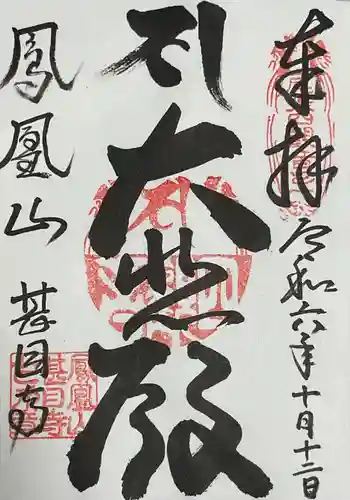 奉拝
令和六年十月十二日
大悲殿
鳳凰山
甚目寺
鳳凰山
甚目寺